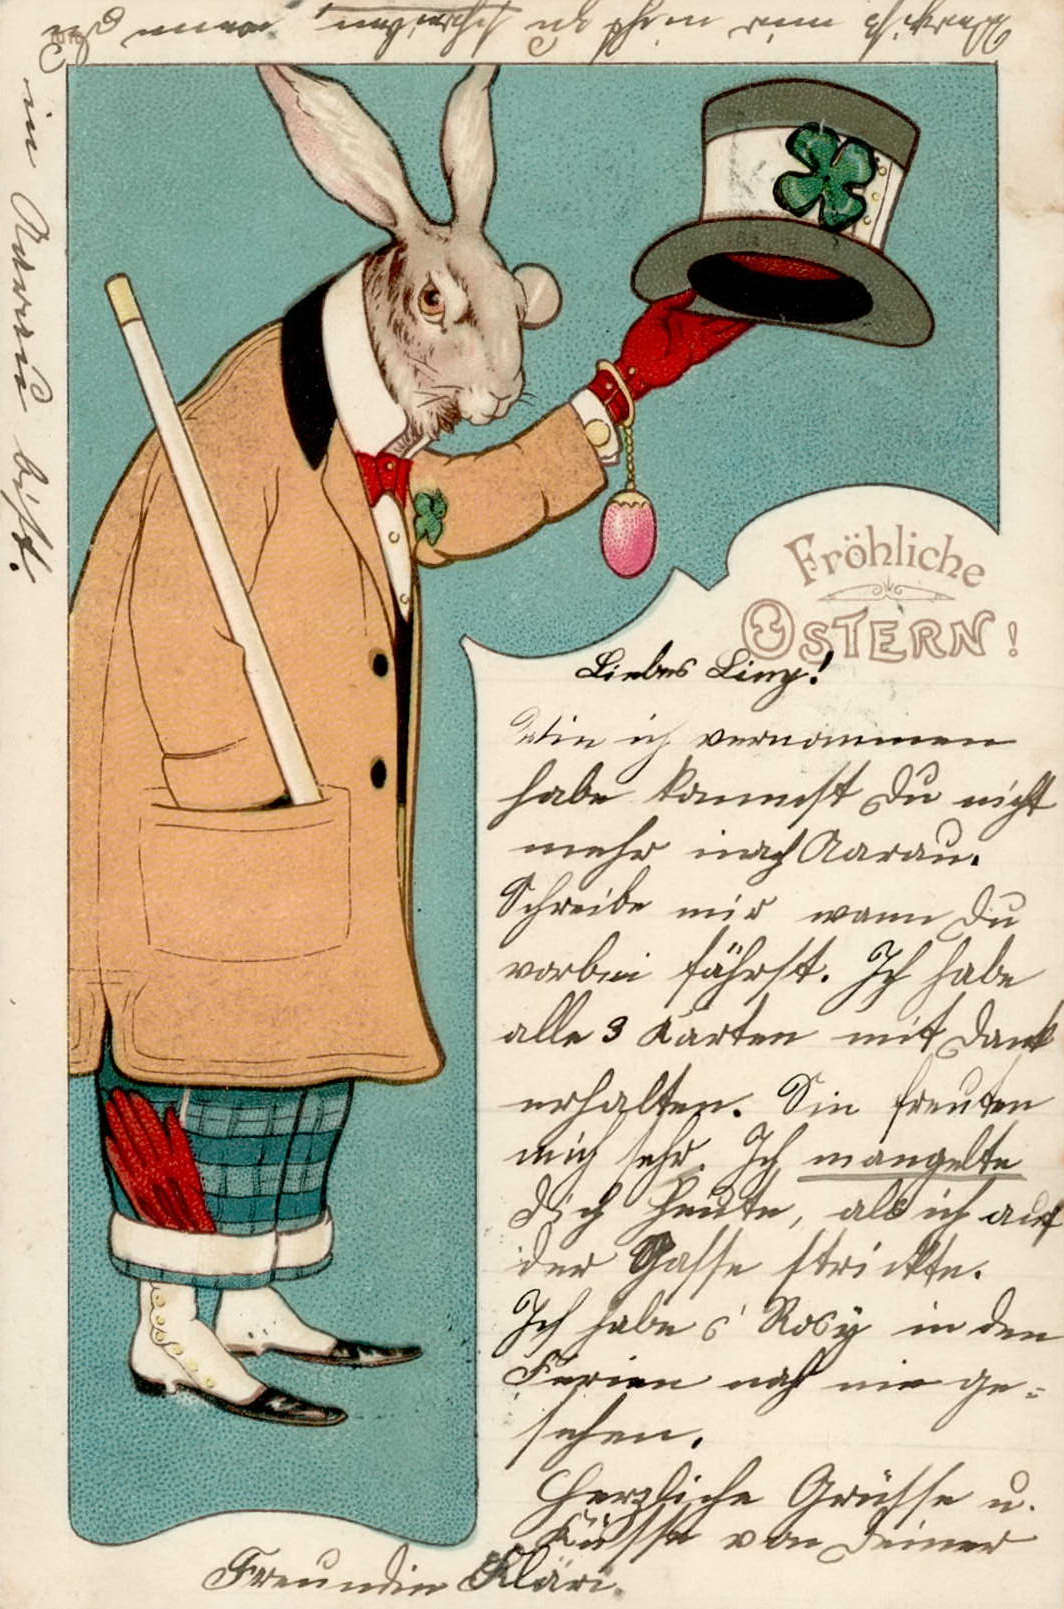 Fröhliche
OSTERN!
Liebes Liny!
Wie ich vernommen
habe kommst Du nicht
mehr nach Aarau.
Schreibe mir wann Du
vorbei fährst. Ich habe
alle 3 Karten mit Dank
erhalten. Sie freuten
mich sehr. Ich mangelte
Dich heute, als ich auf
der Gasse strickte.
Ich habe s' Rosy in den
Ferien noch nie ge=
sehen.
Herzliche Grüsse u.
Küsse von Deiner
Freundin Kläri.
mir noch zu schreiben, wann Du
in Aarau bist.